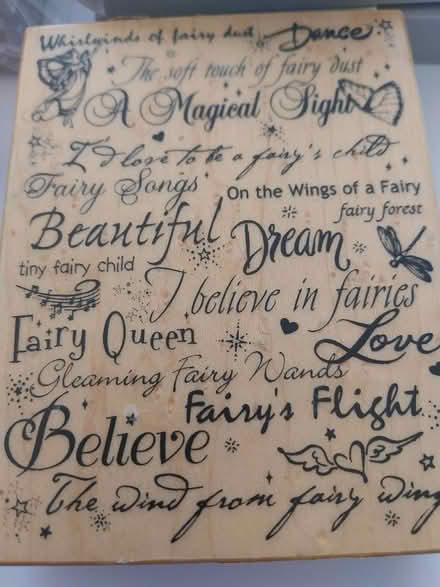 Whirlwinds of fairy dust Dance
The soft touch of fairy dust
A Magical Sight
I'd love to be a fairy's child
Fairy Songs
On the Wings of a Fairy
fairy forest
Beautiful
Dream
tiny fairy child
I believe in fairies
Fairy Queen
Love
Gleaming Fairy Wands
Fairy's Flight
Believe
The wind from fairy wing